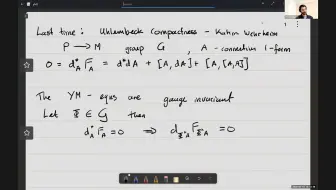 Last time: Uhlenbeck Compactness - Katrin Wehrheim
P → M group G, A - connection 1-form
0 = d*_A F_A = d*dA + [A, dA] + [A, [A,A]]
The YM - equs are gauge invariant
Let Φ ∈ G then
d*_A F_A = 0 ⟹ d_{Φ*A} F_{Φ*A} = 0